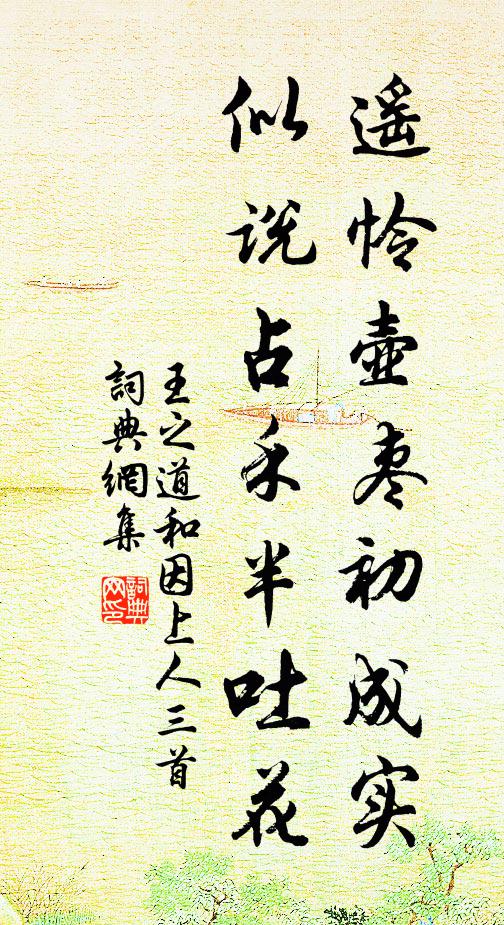 遥怜壶枣初成实
似说占禾半吐花
王之道和因上人三首
詞典網集
詞典網印